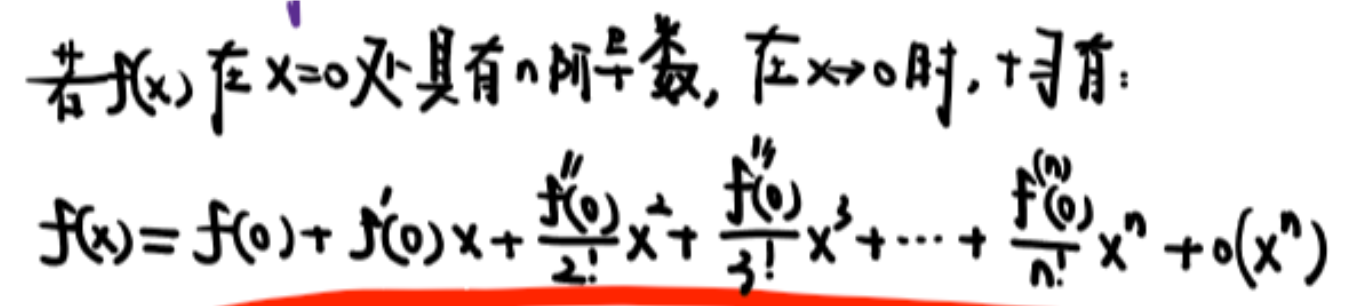 若f(x)在x=0处具有n阶导数,在x→0时,才有:
f(x)=f(0)+f'(0)x+\frac{f''(0)}{2!}x²+\frac{f'''(0)}{3!}x³+⋯+\frac{f^{(n)}(0)}{n!}xⁿ+o(xⁿ)